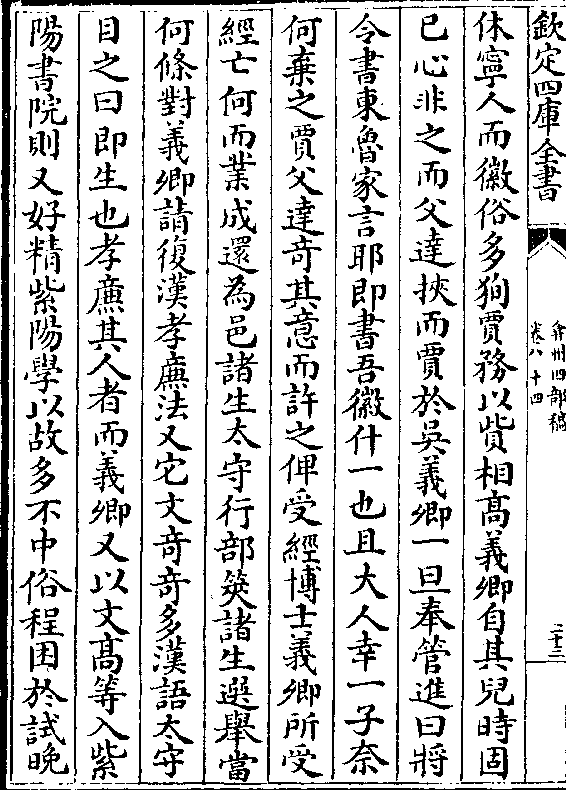 欽定四庫全書
弇州四部稿
卷八十四
二十三
休寧人而徽俗多狥賈務以貲相髙義卿自其兒時固
已心非之而父達挾而賈於吳義卿一旦奉管進曰將
令書東魯家言耶即書吾徽什一也且大人幸一子奈
何棄之賈父達竒其意而許之俾受經博士義卿所受
經亡何而業成還為邑諸生太守行部筴諸生選舉當
何條對義卿請復漢孝亷法又它文竒竒多漢語太守
目之曰即生也孝亷其人者而義卿又以文髙等入紫
陽書院則又好精紫陽學以故多不中俗程困於試晚